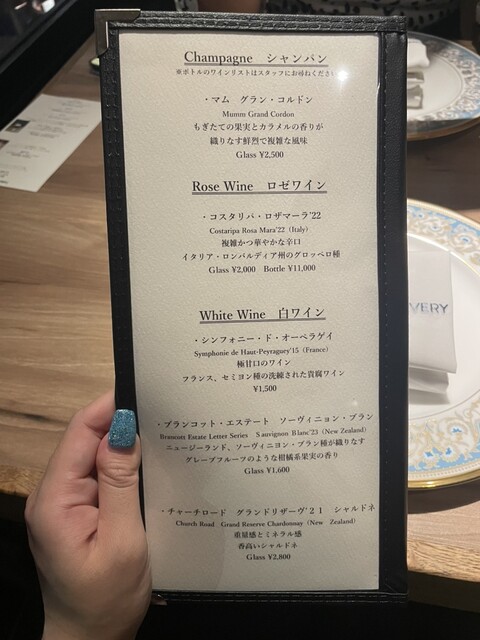 Champagne シャンパン
※ボトルのワインリストはスタッフにお尋ねください
・マム グラン・コルドン
Mumm Grand Cordon
もぎたての果実とカラメルの香りが
織りなす鮮烈で複雑な風味
Glass ¥2,500
Rose Wine ロゼワイン
・コスタリパ・ロザマーラ'22
Costaripa Rosa Mara'22 (Italy)
複雑かつ華やかな辛口
イタリア・ロンバルディア州のグロッペロ種
Glass ¥2,000 Bottle ¥11,000
White Wine 白ワイン
・シンフォニー・ド・オーペラゲイ
Symphonie de Haut-Peyragury'15 (France)
極甘口のワイン
フランス、セミヨン種の洗練された貴腐ワイン
¥1,500
・ブランコット・エステート ソーヴィニョン・ブラン
Brancott Estate Letter Series Sauvignon Blanc'23 (New Zealand)
ニュージーランド、ソーヴィニヨン・ブラン種が織りなす
グレープフルーツのような柑橘系果実の香り
Glass ¥1,600
・チャーチロード グランドリザーヴ'21 シャルドネ
Church Road Grand Reserve Chardonnay (New Zealand)
重厚感とミネラル感
香高いシャルドネ
Glass ¥2,800
VERY